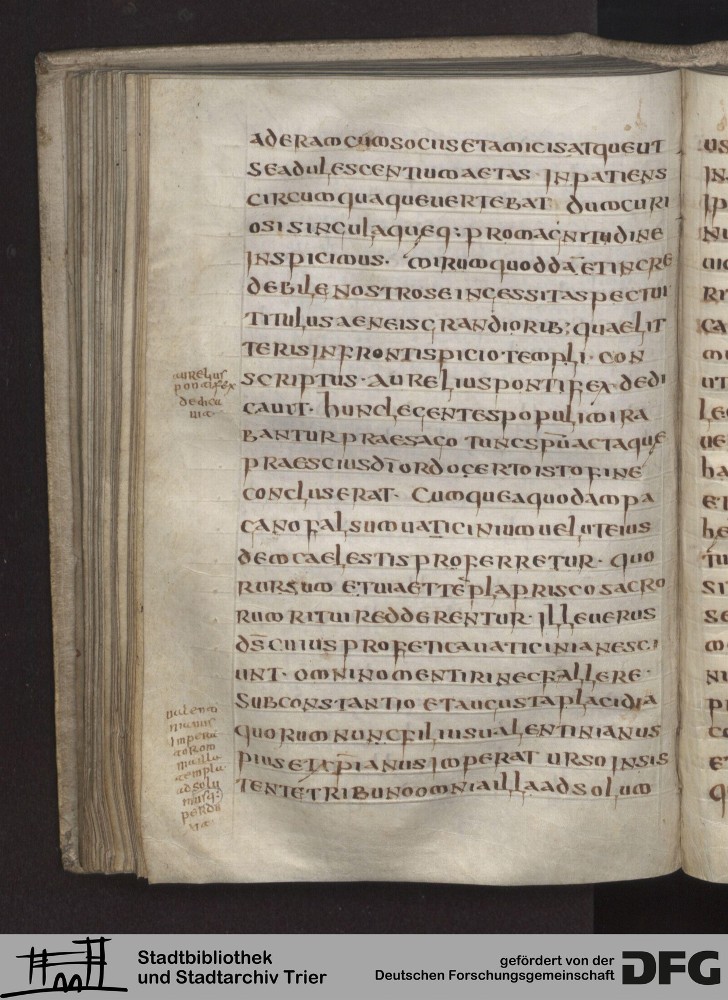 ADERAM CUM SOCIIS ET AMICIS ATQUE UT
SE ADULESCENTIUM AETAS INPATIENS
CIRCUMQUAQUE UERTEBAT DUM CURI
OSI SINGULA QUEQ; PRO MAGNITUDINE
INSPICIMUS. MIRUM QUODDĀ ET INCRE
DEBILE NOSTRO SE INGESSIT ASPECTUI
TITULUS AENEIS GRANDIORIB; QUAE LIT
TERIS IN FRONTISPICIO TEMPLI CON
SCRIPTUS. AURELIUS PONTIFEX DEDI
CAUIT. HUNC LEGENTES POPULI MIRA
BANTUR PRAESAGO TUNC SPŪ ACTA QUE
PRAESCIUS DĪ ORDO CERTO ISTO FINE
CONCLUSERAT. CUMQUE A QUODAM PA
GANO FALSUM UATICINIUM UELUT EIUS
DEM CAELESTIS PROFERRETUR. QUO
RURSUM ET UIA ET TĒPLA PRISCO SACRO
RUM RITUI REDDERENTUR. ILLE UERUS
DS̄ CUIUS PROFETICA UATICINIA NESCI
UNT. OMNINO MENTIRI NEC FALLERE.
SUB CONSTANTIO ET AUGUSTA PLACIDIA
QUORUM NUNC FILIUS UALENTINIANUS
PIUS ET XP̄IANUS IMPERAT URSO INSIS
TENTE TRIBUNO OMNIA ILLA AD SOLUM
AURELIUS
PONTIFEX
DEDICA
UIT
UALENTI
NIANUS
IMPERA
TOR OM
NIA ILLA
TEMPLA
AD SOLU
USQ;
PERDU
XIT
Stadtbibliothek
und Stadtarchiv Trier
gefördert von der
Deutschen Forschungsgemeinschaft
DFG